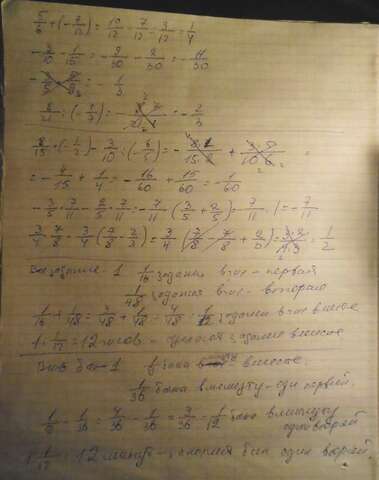 5/6 + (-7/12) = 10/12 - 7/12 = 3/12 = 1/4
- 3/10 - 1/15 = - 9/30 - 2/30 = - 11/30
= - 1/3
8/21 : (-4/7) = - 2/3
8/15 · (-1/2) - 3/10 : (-6/5) =
= - 4/15 + 1/4 = - 16/60 + 15/60 = - 1/60
- 3/5 · 7/11 - 2/5 · 7/11 = - 7/11 · (3/5 + 2/5) = - 7/11 · 1 = - 7/11
3/4 · 7/8 - 3/4 (7/8 - 2/3) = 3/4 (7/8 - 7/8 + 2/3) = 1/2
1/16 задания в час - первый
1/48 задания в час - вторая
1/16 + 1/48 = 3/48 + 1/48 = 4/48 = 1/12 задания в час вместе
1 : 1/12 = 12 часов - задание вместе
бака - вместе
1/36 бака в минуту - один первый.
1/9 - 1/36 = 4/36 - 1/36 = 3/36 = 1/12 бака в минуту один второй
1 : 1/12 = 12 минут - бак один второй.